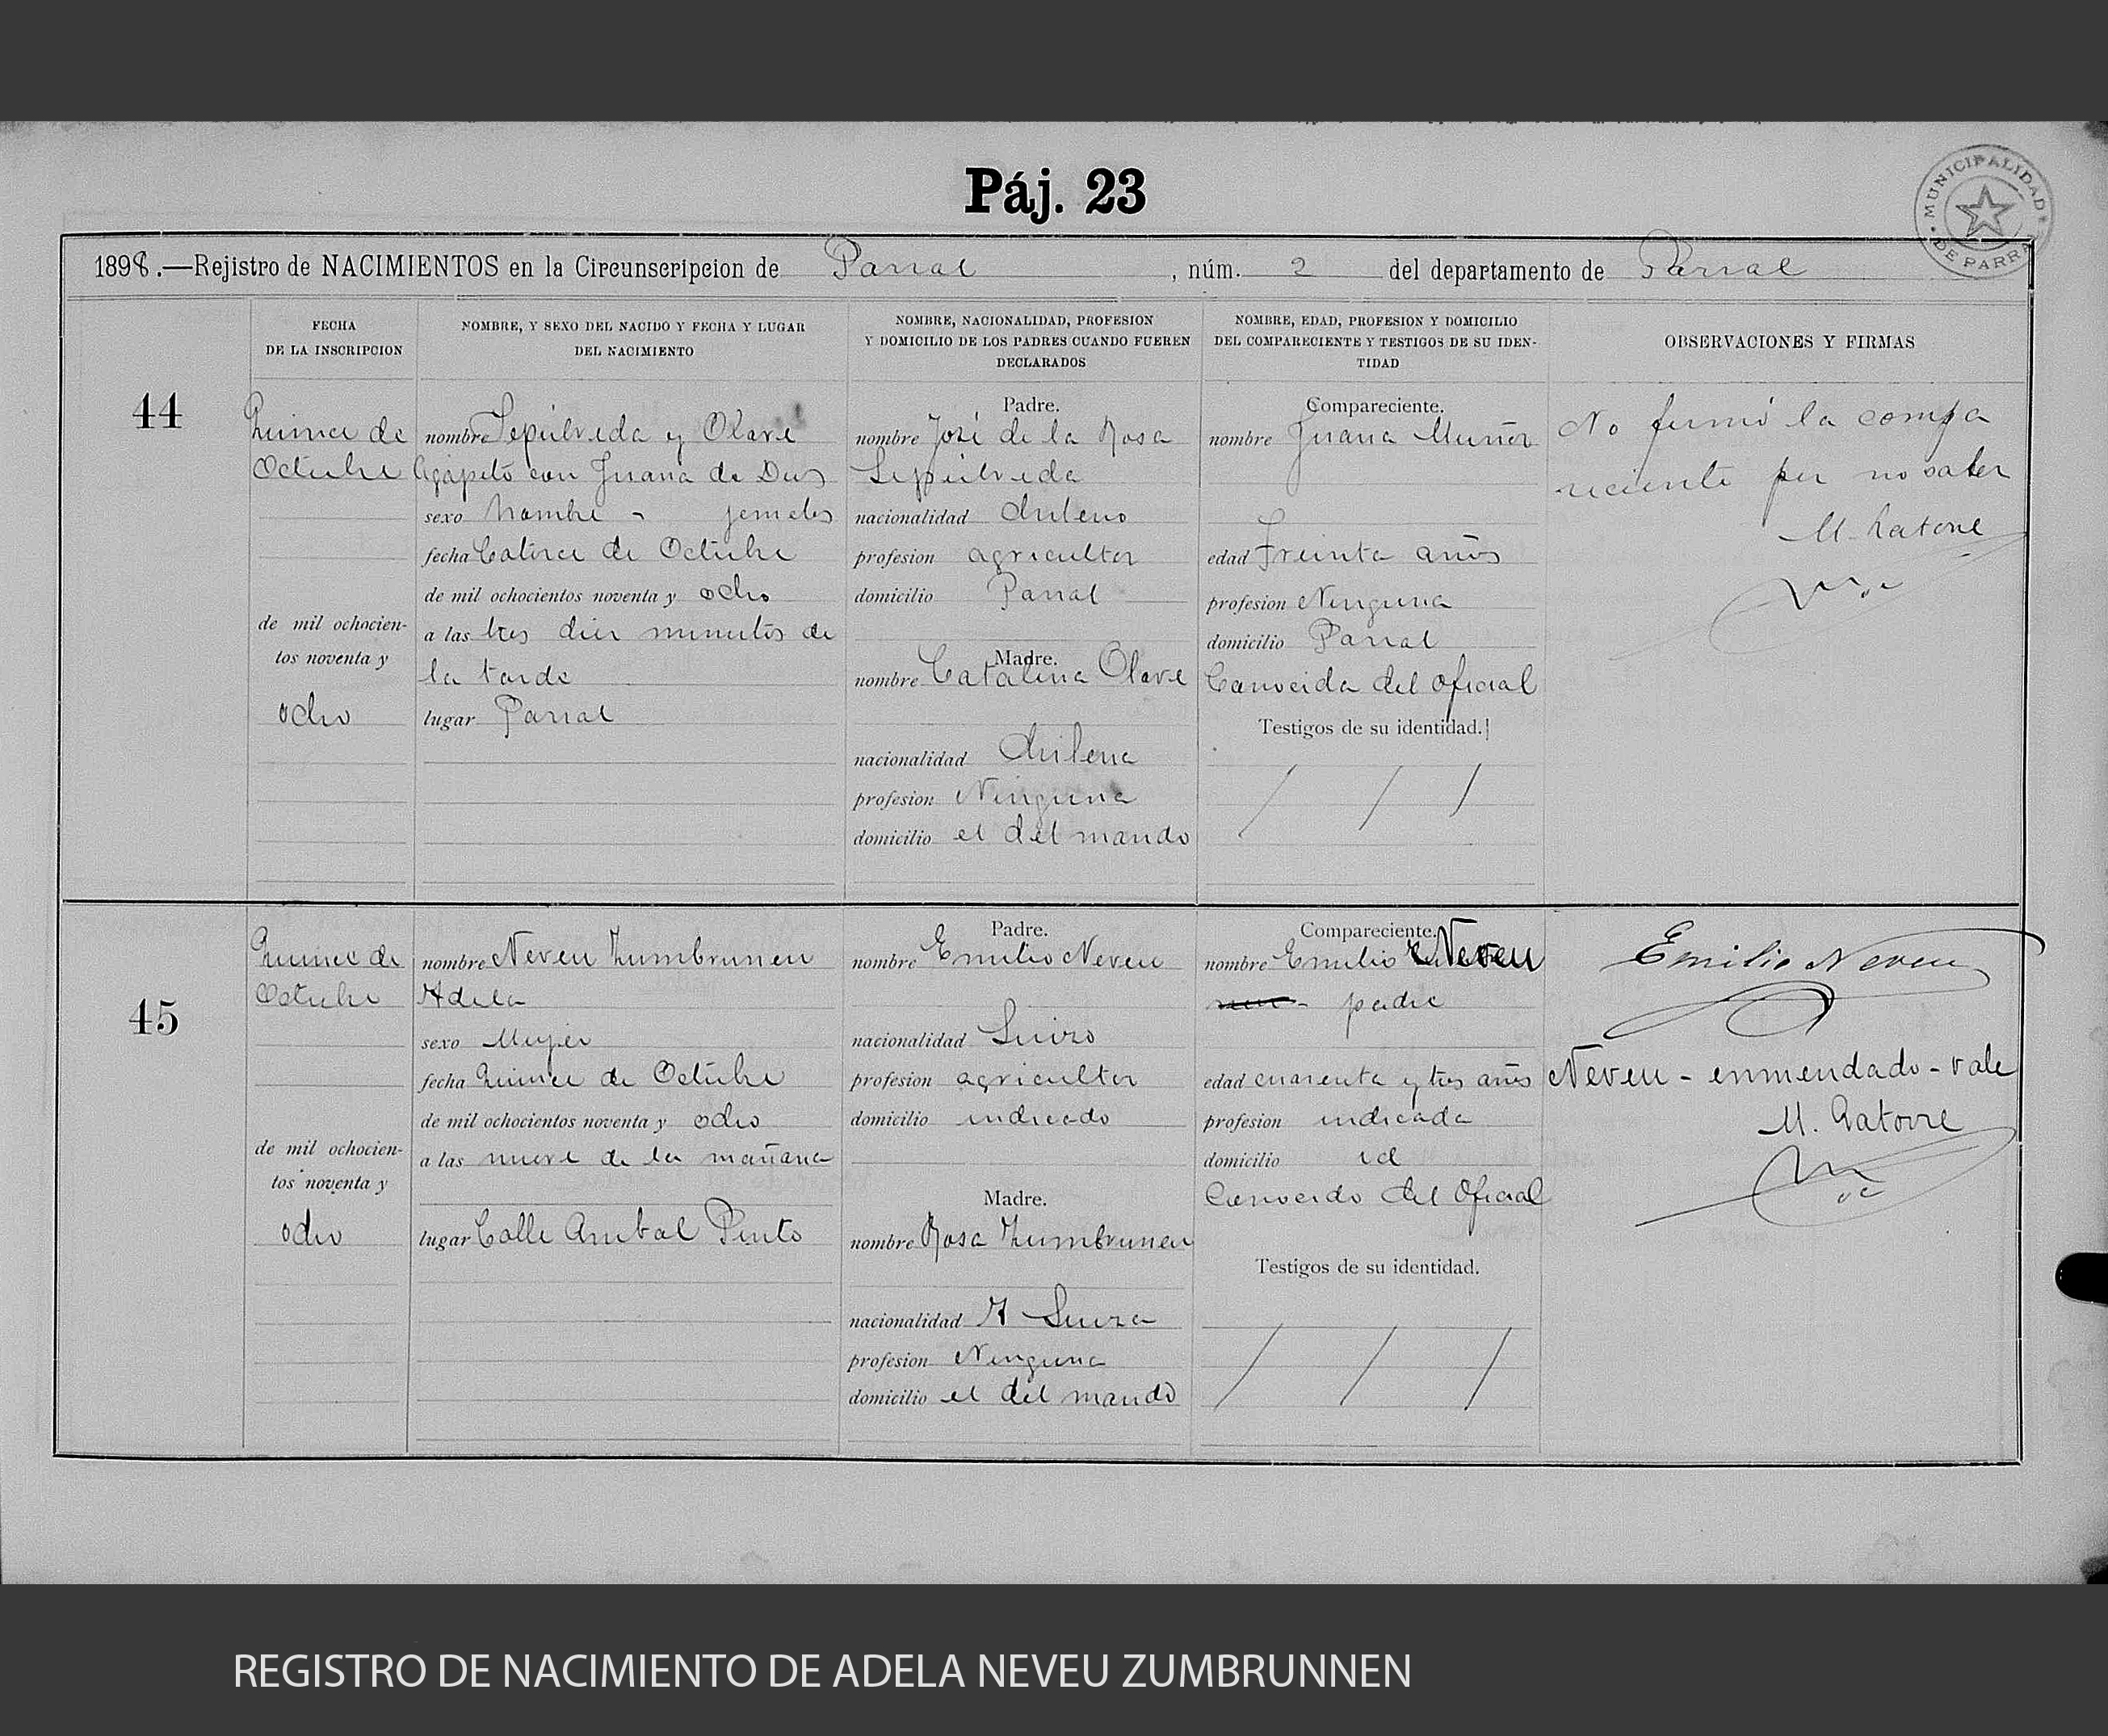 Páj. 23
MUNICIPALIDAD DE PARRAL
1898.—Rejistro de NACIMIENTOS en la Circunscripcion de Parral, núm. 2 del departamento de Parral
FECHA
DE LA INSCRIPCION
NOMBRE, Y SEXO DEL NACIDO Y FECHA Y LUGAR
DEL NACIMIENTO
NOMBRE, NACIONALIDAD, PROFESION
Y DOMICILIO DE LOS PADRES CUANDO FUEREN
DECLARADOS
NOMBRE, EDAD, PROFESION Y DOMICILIO
DEL COMPARECIENTE Y TESTIGOS DE SU IDEN-
TIDAD
OBSERVACIONES Y FIRMAS
44
Quince de
Octubre
de mil ochocien-
tos noventa y
ocho
nombre Sepúlveda y Olave
Agapito con Juana de Dios
sexo hombre - jemelos
fecha Catorce de Octubre
de mil ochocientos noventa y ocho
a las tres diez minutos de
la tarde
lugar Parral
Padre.
nombre José de la Rosa
Sepúlveda
nacionalidad chileno
profesion agricultor
domicilio Parral
Madre.
nombre Catalina Olave
nacionalidad chilena
profesion Ninguna
domicilio el del marido
Compareciente.
nombre Juana Muñoz
edad Treinta años
profesion Ninguna
domicilio Parral
Conocida del oficial
Testigos de su identidad.
No firmó la compa
reciente por no saber
M. Latorre
45
Quince de
Octubre
de mil ochocien-
tos noventa y
ocho
nombre Neveu Zumbrunen
Adela
sexo Mujer
fecha Quince de Octubre
de mil ochocientos noventa y ocho
a las nueve de la mañana
lugar Calle Anibal Pinto
Padre.
nombre Emilio Neveu
nacionalidad Suizo
profesion agricultor
domicilio indicado
Madre.
nombre Rosa Zumbrunen
nacionalidad Suiza
profesion Ninguna
domicilio el del marido
Compareciente.
nombre Emilio Neveu
padre
edad cuarenta y tres años
profesion indicada
domicilio id
Conocido del Oficial
Testigos de su identidad.
Emilio Neveu
Neveu - enmendado - vale
M. Latorre
REGISTRO DE NACIMIENTO DE ADELA NEVEU ZUMBRUNNEN